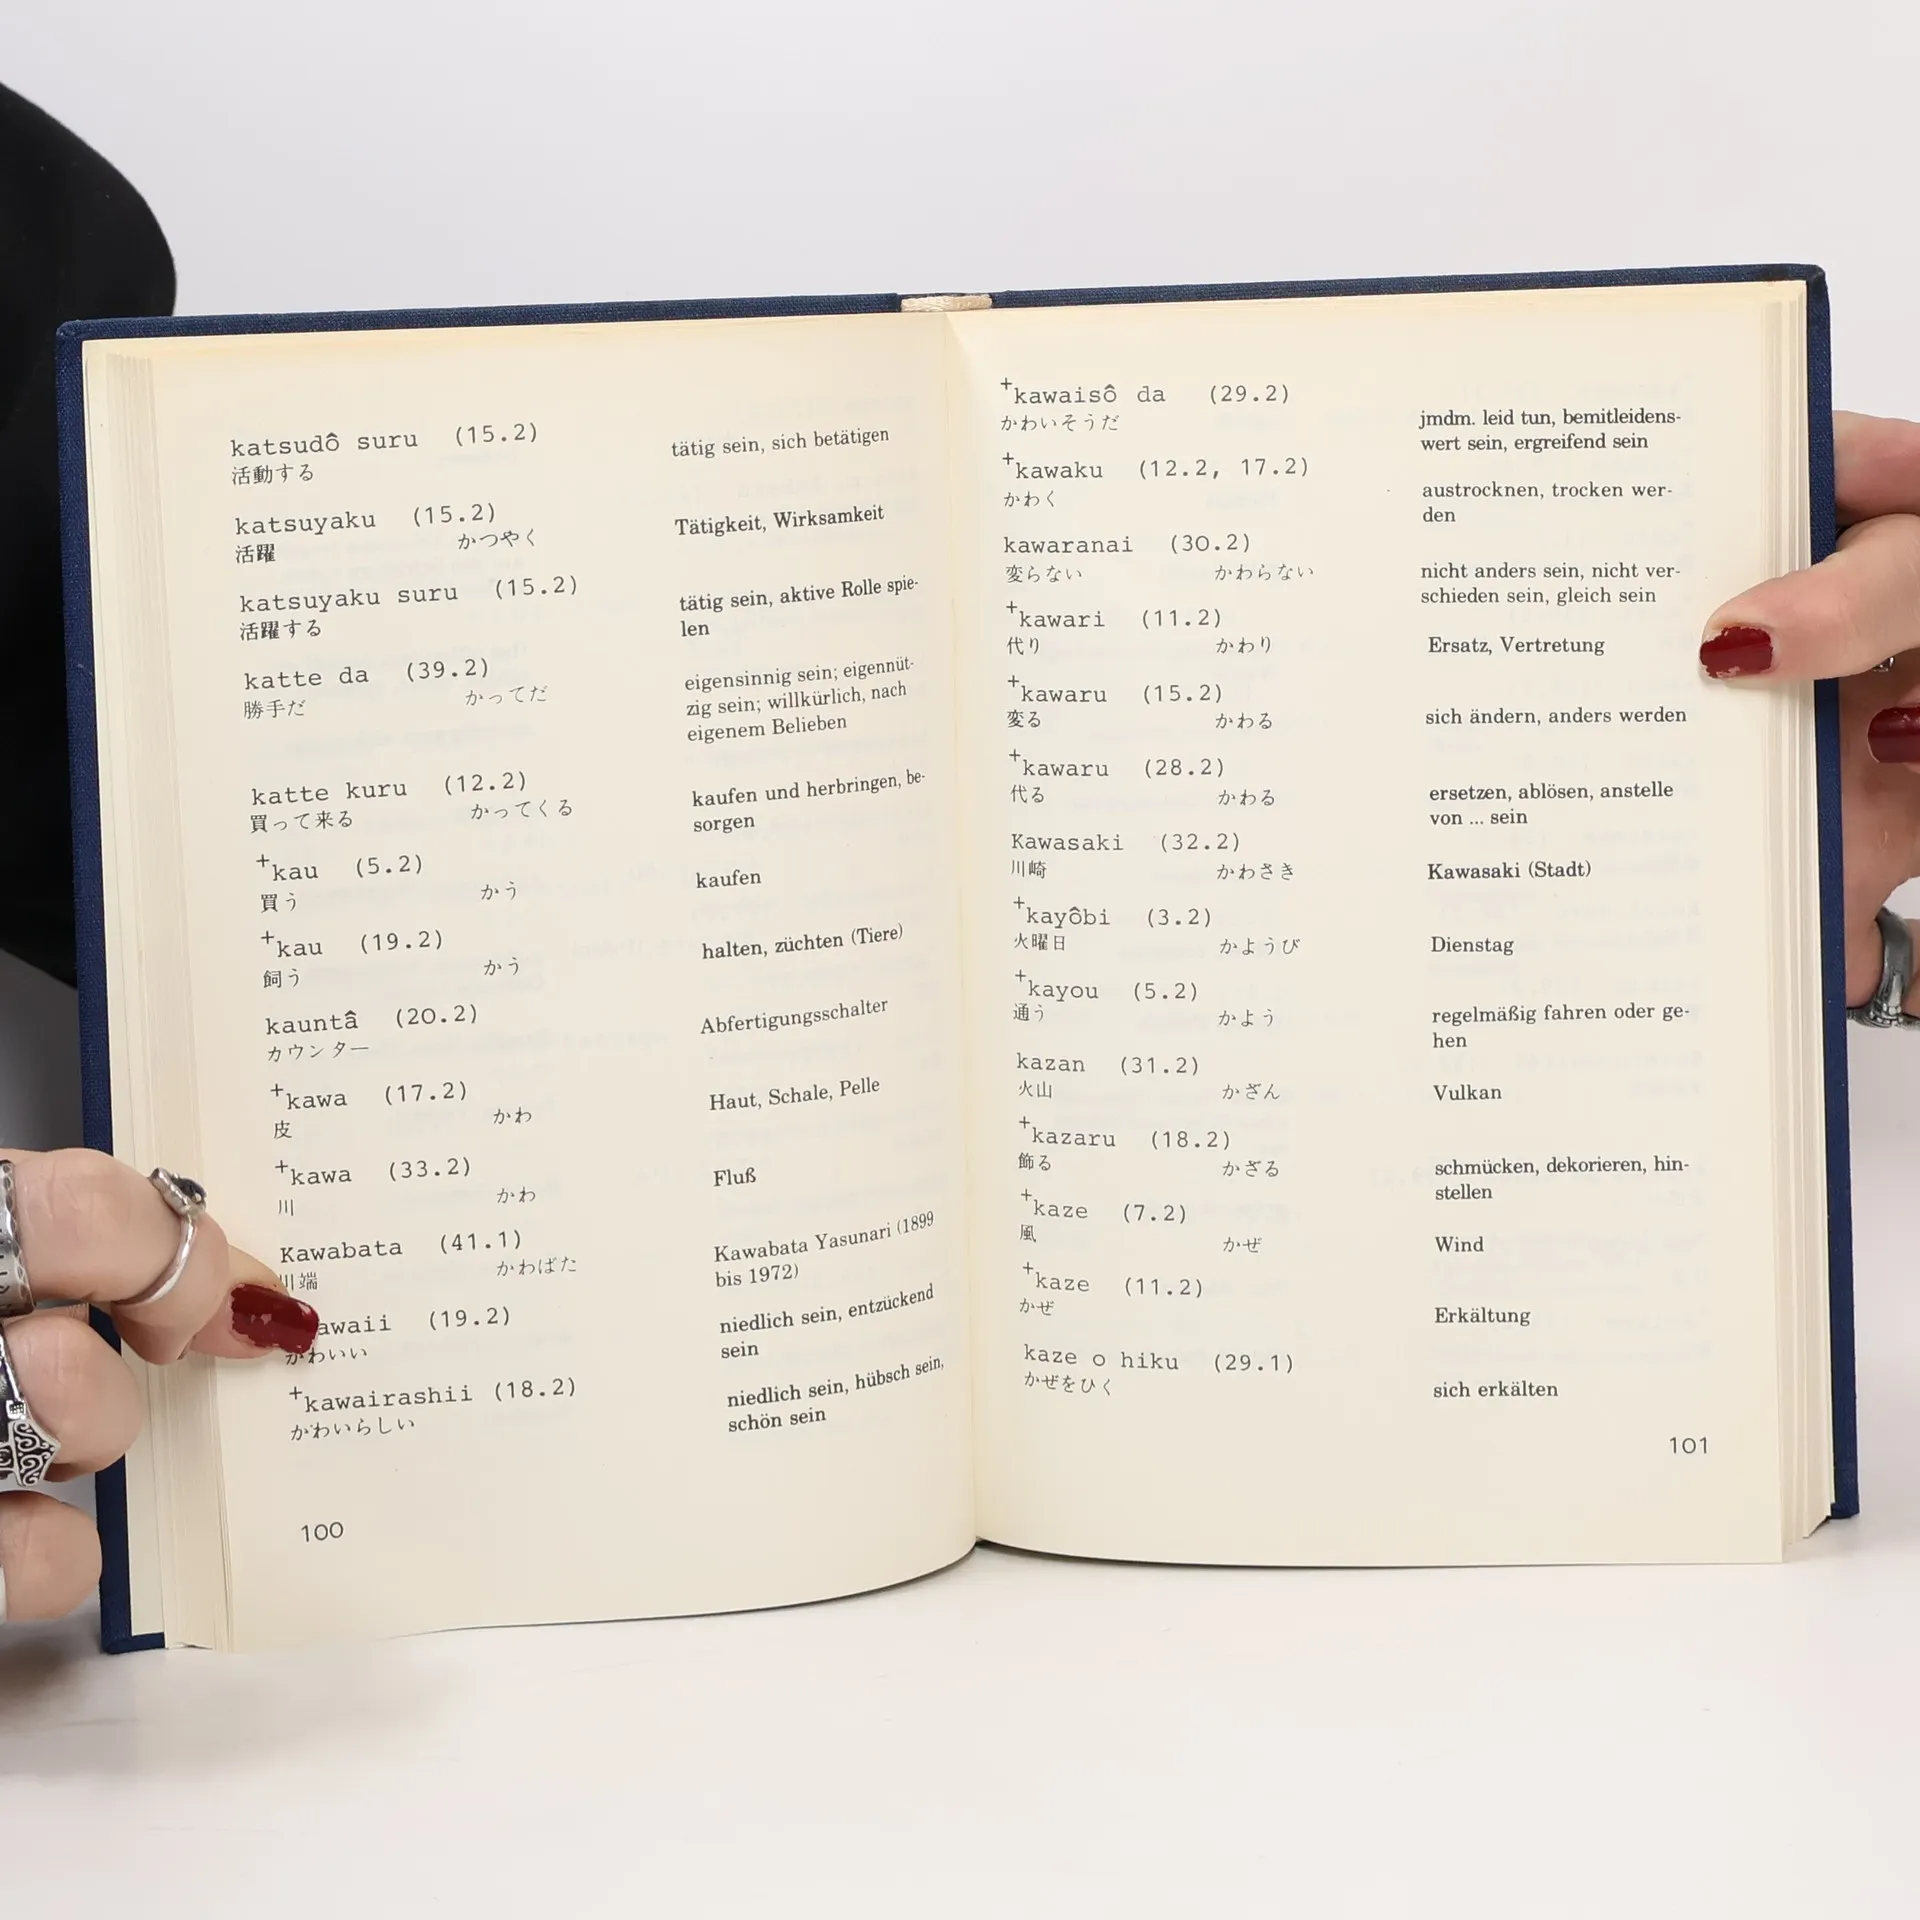 katsudô suru (15.2)
活動する
tätig sein, sich betätigen
katsuyaku (15.2)
活躍 かつやく
Tätigkeit, Wirksamkeit
katsuyaku suru (15.2)
活躍する
tätig sein, aktive Rolle spie-
len
katte da (39.2)
勝手だ かってだ
eigensinnig sein; eigennüt-
zig sein; willkürlich, nach
eigenem Belieben
katte kuru (12.2)
買って来る かってくる
kaufen und herbringen, be-
sorgen
+kau (5.2)
買う かう
kaufen
+kau (19.2)
飼う かう
halten, züchten (Tiere)
kauntâ (20.2)
カウンター
Abfertigungsschalter
+kawa (17.2)
皮 かわ
Haut, Schale, Pelle
+kawa (33.2)
川 かわ
Fluß
Kawabata (41.1)
川端 かわばた
Kawabata Yasunari (1899
bis 1972)
awaii (19.2)
かわいい
niedlich sein, entzückend
sein
+kawairashii (18.2)
かわいらしい
niedlich sein, hübsch sein,
schön sein
100
+kawaisô da (29.2)
かわいそうだ
jmdm. leid tun, bemitleidens-
wert sein, ergreifend sein
+kawaku (12.2, 17.2)
かわく
austrocknen, trocken wer-
den
kawaranai (30.2)
変らない かわらない
nicht anders sein, nicht ver-
schieden sein, gleich sein
+kawari (11.2)
代り かわり
Ersatz, Vertretung
+kawaru (15.2)
変る かわる
sich ändern, anders werden
+kawaru (28.2)
代る かわる
ersetzen, ablösen, anstelle
von ... sein
Kawasaki (32.2)
川崎 かわさき
Kawasaki (Stadt)
+kayôbi (3.2)
火曜日 かようび
Dienstag
+kayou (5.2)
通う かよう
regelmäßig fahren oder ge-
hen
kazan (31.2)
火山 かざん
Vulkan
+kazaru (18.2)
飾る かざる
schmücken, dekorieren, hin-
stellen
+kaze (7.2)
風 かぜ
Wind
+kaze (11.2)
かぜ
Erkältung
kaze o hiku (29.1)
かぜをひく
sich erkälten
101